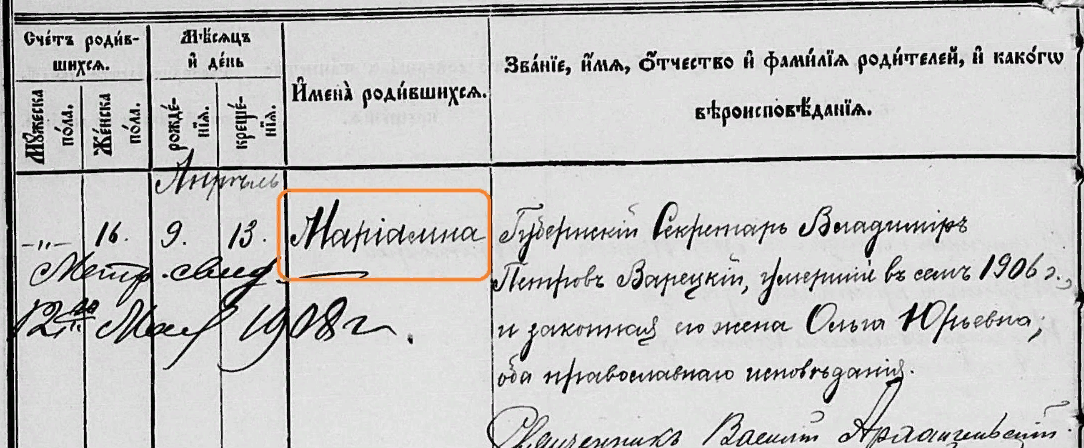 Сче́тъ роди́в-
шихся.
Мѣсяцъ
и҆ де́нь
И҆мена̀ роди́вшихся.
Зва́нїе, и҆́мя, Ѻ҆́тчество и҆ фами́лїя роди́телей, и҆ како́гѡ
вѣроисповѣ́данїя.
Мꙋ́жеска
по́ла.
Же́нска
по́ла.
рожде́-
нїя.
креще́-
нїя.
Апрѣль
-„- 16. 9. 13. Маріамна
Губернскій Секретарь Владиміръ
Петровъ Варецкій, умершій въ семъ 1906 г.,
и законная его жена Ольга Юрьевна;
оба православнаго исповѣданія.
Метр. свид.
12го Мая 1908 г.
Священникъ Василій Архангельскій